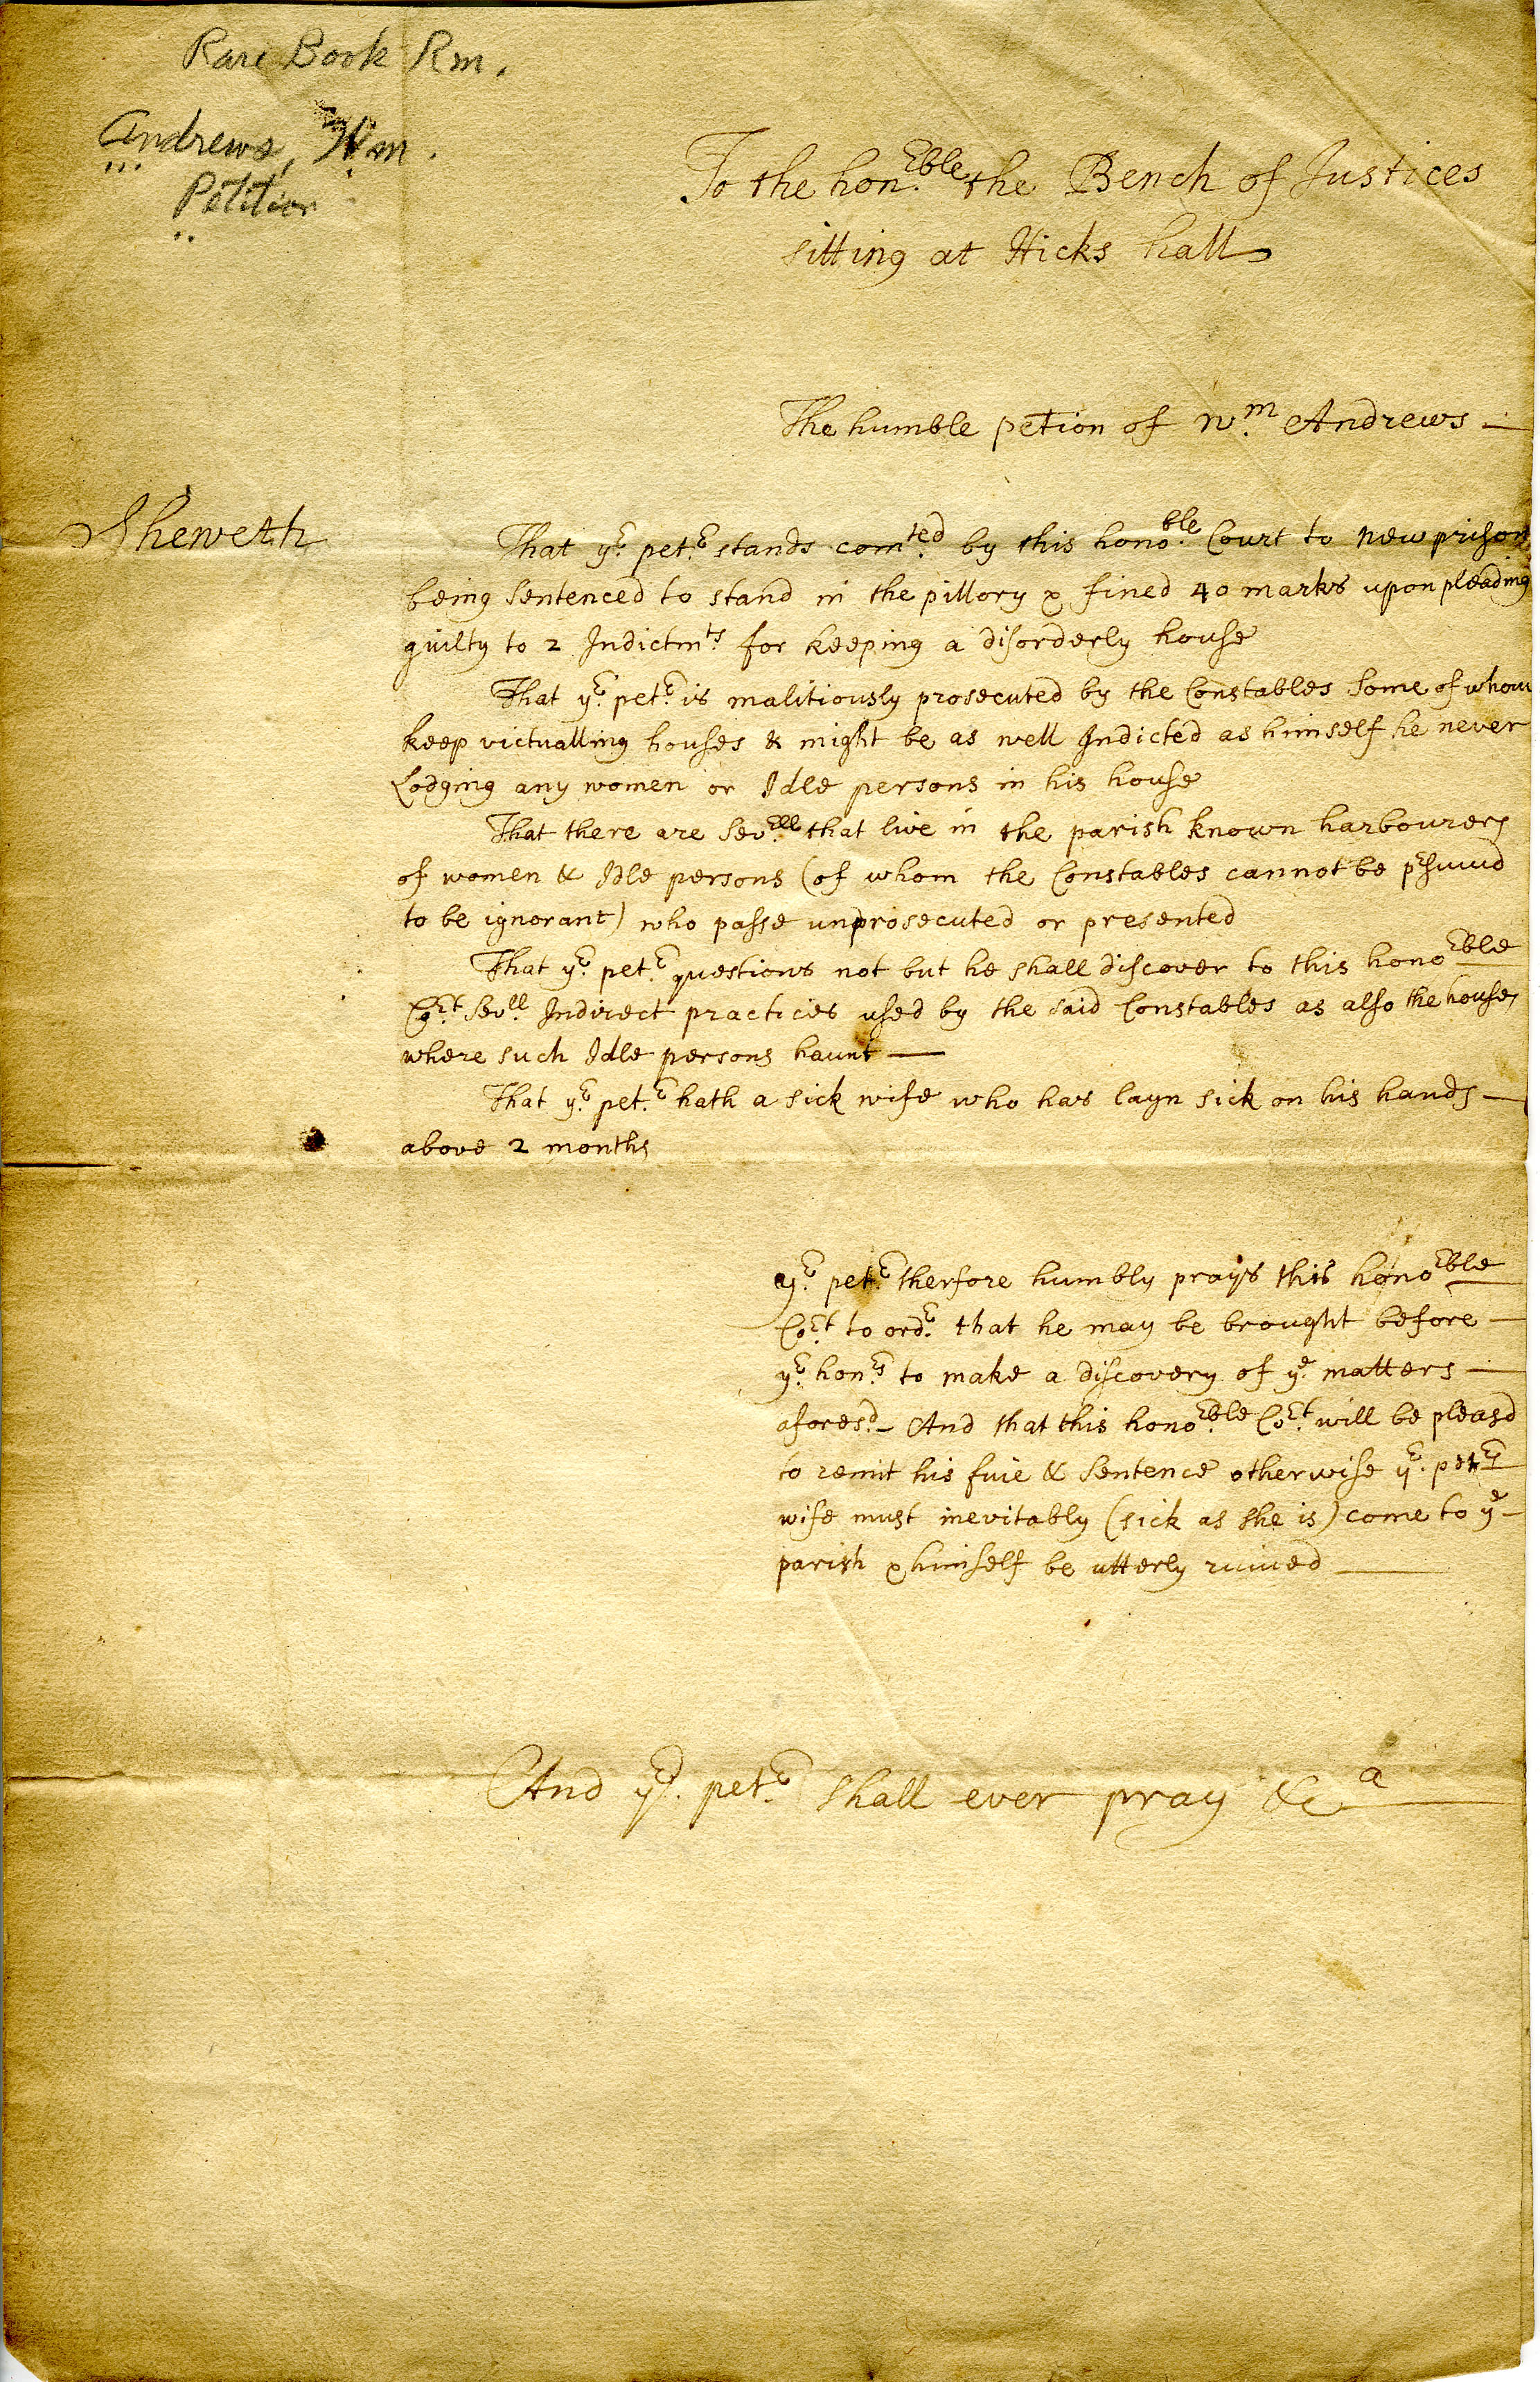 Rare Book Rm.
Andrews, Wm.
Petition
To the hon:ble the Bench of Justices
sitting at Hicks hall
The humble petion of Wm Andrews —
Sheweth
That yr petr stands comted by this honoble Court to new prison
being Sentenced to stand in the pillory & fined 40 marks upon pleading
guilty to 2 Indictmts for keeping a disorderly house
That yr petr is malitiously prosecuted by the Constables Some of whom
keep victualling houses & might be as well Indicted as himself he never
Lodging any women or Idle persons in his house
That there are Sevrll that live in the parish known harbourers
of women & Idle persons (of whom the Constables cannot be prsumd
to be ignorant) who passe unprosecuted or presented
That yr petr questions not but he shall discover to this honorble
Cort Sevll Indirect practices used by the said Constables as also the houses
where such Idle persons haunt —
That yr petr hath a sick wife who has layn sick on his hands —
above 2 months
yr petr therfore humbly prays this honorble
Cort to ordr that he may be brought before —
yr honrs to make a discovery of ye matters —
aforesd — And that this honorble Cort will be pleasd
to remit his fine & Sentence otherwise yr petrs
wife must inevitably (sick as she is) come to ye —
parish & himself be utterly ruined —
And yr petr shall ever pray &ca —